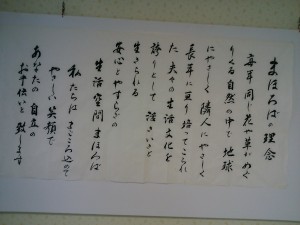 まほろばの理念
毎年同じ花や草にめぐ
りくる自然の中で 地球
にやさしく 隣人にやさしく
長年に亘り培ってこられ
た 夫々の生活文化を
誇りとして 活き活きと
生きられる
安心とやすらぎの
生活空間 まほろば
私たちは まごころ込めて
やさしい笑顔で
あなたの 自立の
お手伝いを 致します